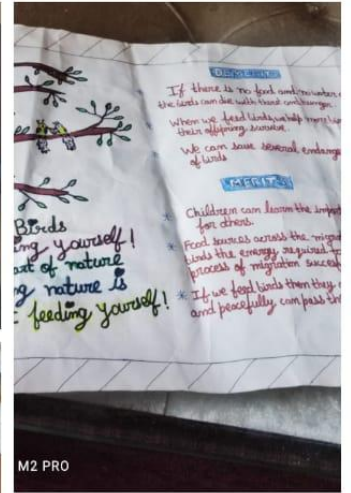 Birds
ing yourself!
art of nature
ng nature is
feeding yourself!
If there is no food and no water
the birds can die with thirst and hunger.
When we feed birds, we help many
their offspring survive.
We can save several endange
of birds
MERIT
* Children can learn the import
for others.
* Food sources across the migra
birds the energy required to
process of migration succes
* If we feed birds then they
and peacefully can pass th
M2 PRO